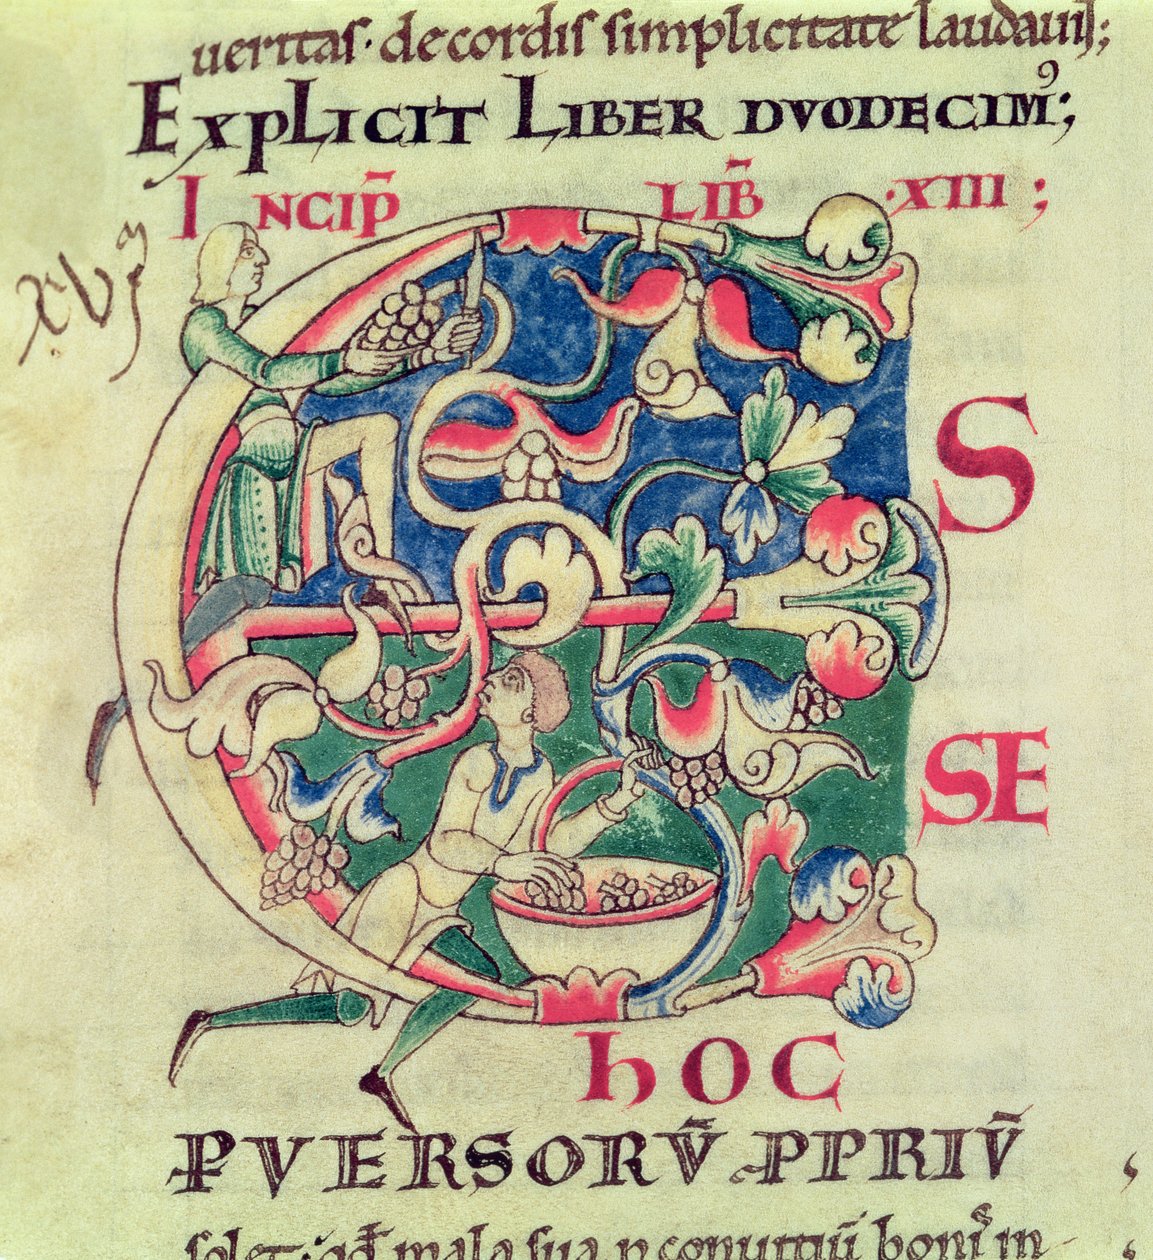 ueritas· de cordis simplicitate laudauit;
EXPLICIT LIBER DVODECIMꝰ;
INCIP̄ LIB̄ ·XIII;
xvɜ
E S
SE
hOC
ꝑVERSORV̄ PPRIV̄
solet; qđ mala sua ꝑ conuitiū bonis in